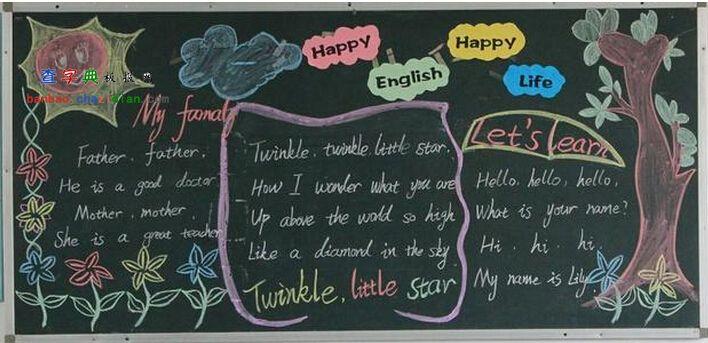 Happy
English
Happy
Life
查字典
banbao.chazidian.com
My famaly
Father, father,
He is a good doctor
Mother, mother,
She is a great teacher
Twinkle, twinkle, little star,
How I wonder what you are
Up above the world so high
Like a diamond in the sky
Twinkle, little star
Let's learn
Hello, hello, hello,
What is your name?
Hi, hi, hi,
My name is Lily.